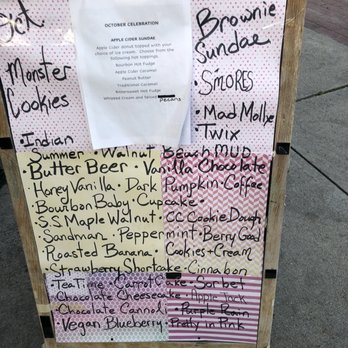 Oct
Monster
Cookies
• Indian
Summer • Walnut Beach Mud
OCTOBER CELEBRATION
APPLE CIDER SUNDAE
Apple Cider donut topped with your
choice of ice cream. Choose from the
following hot toppings
Bourbon Hot Fudge
Apple Cider Caramel
Peanut Butter
Traditional Caramel
Bittersweet Hot Fudge
Whipped Cream and
pecans
Brownie
Sundae
• S'MORES
• Mad Mollie
Twix
• Butter Beer • Vanilla Chocolate
• Honey Vanilla • Dark Pumpkin • Coffee
• Bourbon Baby • Cupcake
• SS Maple Walnut • CC Cookie Dough
• Sandman • Peppermint • Berry Good
• Roasted Banana • Cookies + Cream
• Strawberry Shortcake • Cinnabon
• Tea Time • Carrot Cake • Sorbet
• Chocolate Cheesecake • Apple Jack
• Chocolate Cannoli • Purple Rain
• Vegan Blueberry • Pretty in Pink